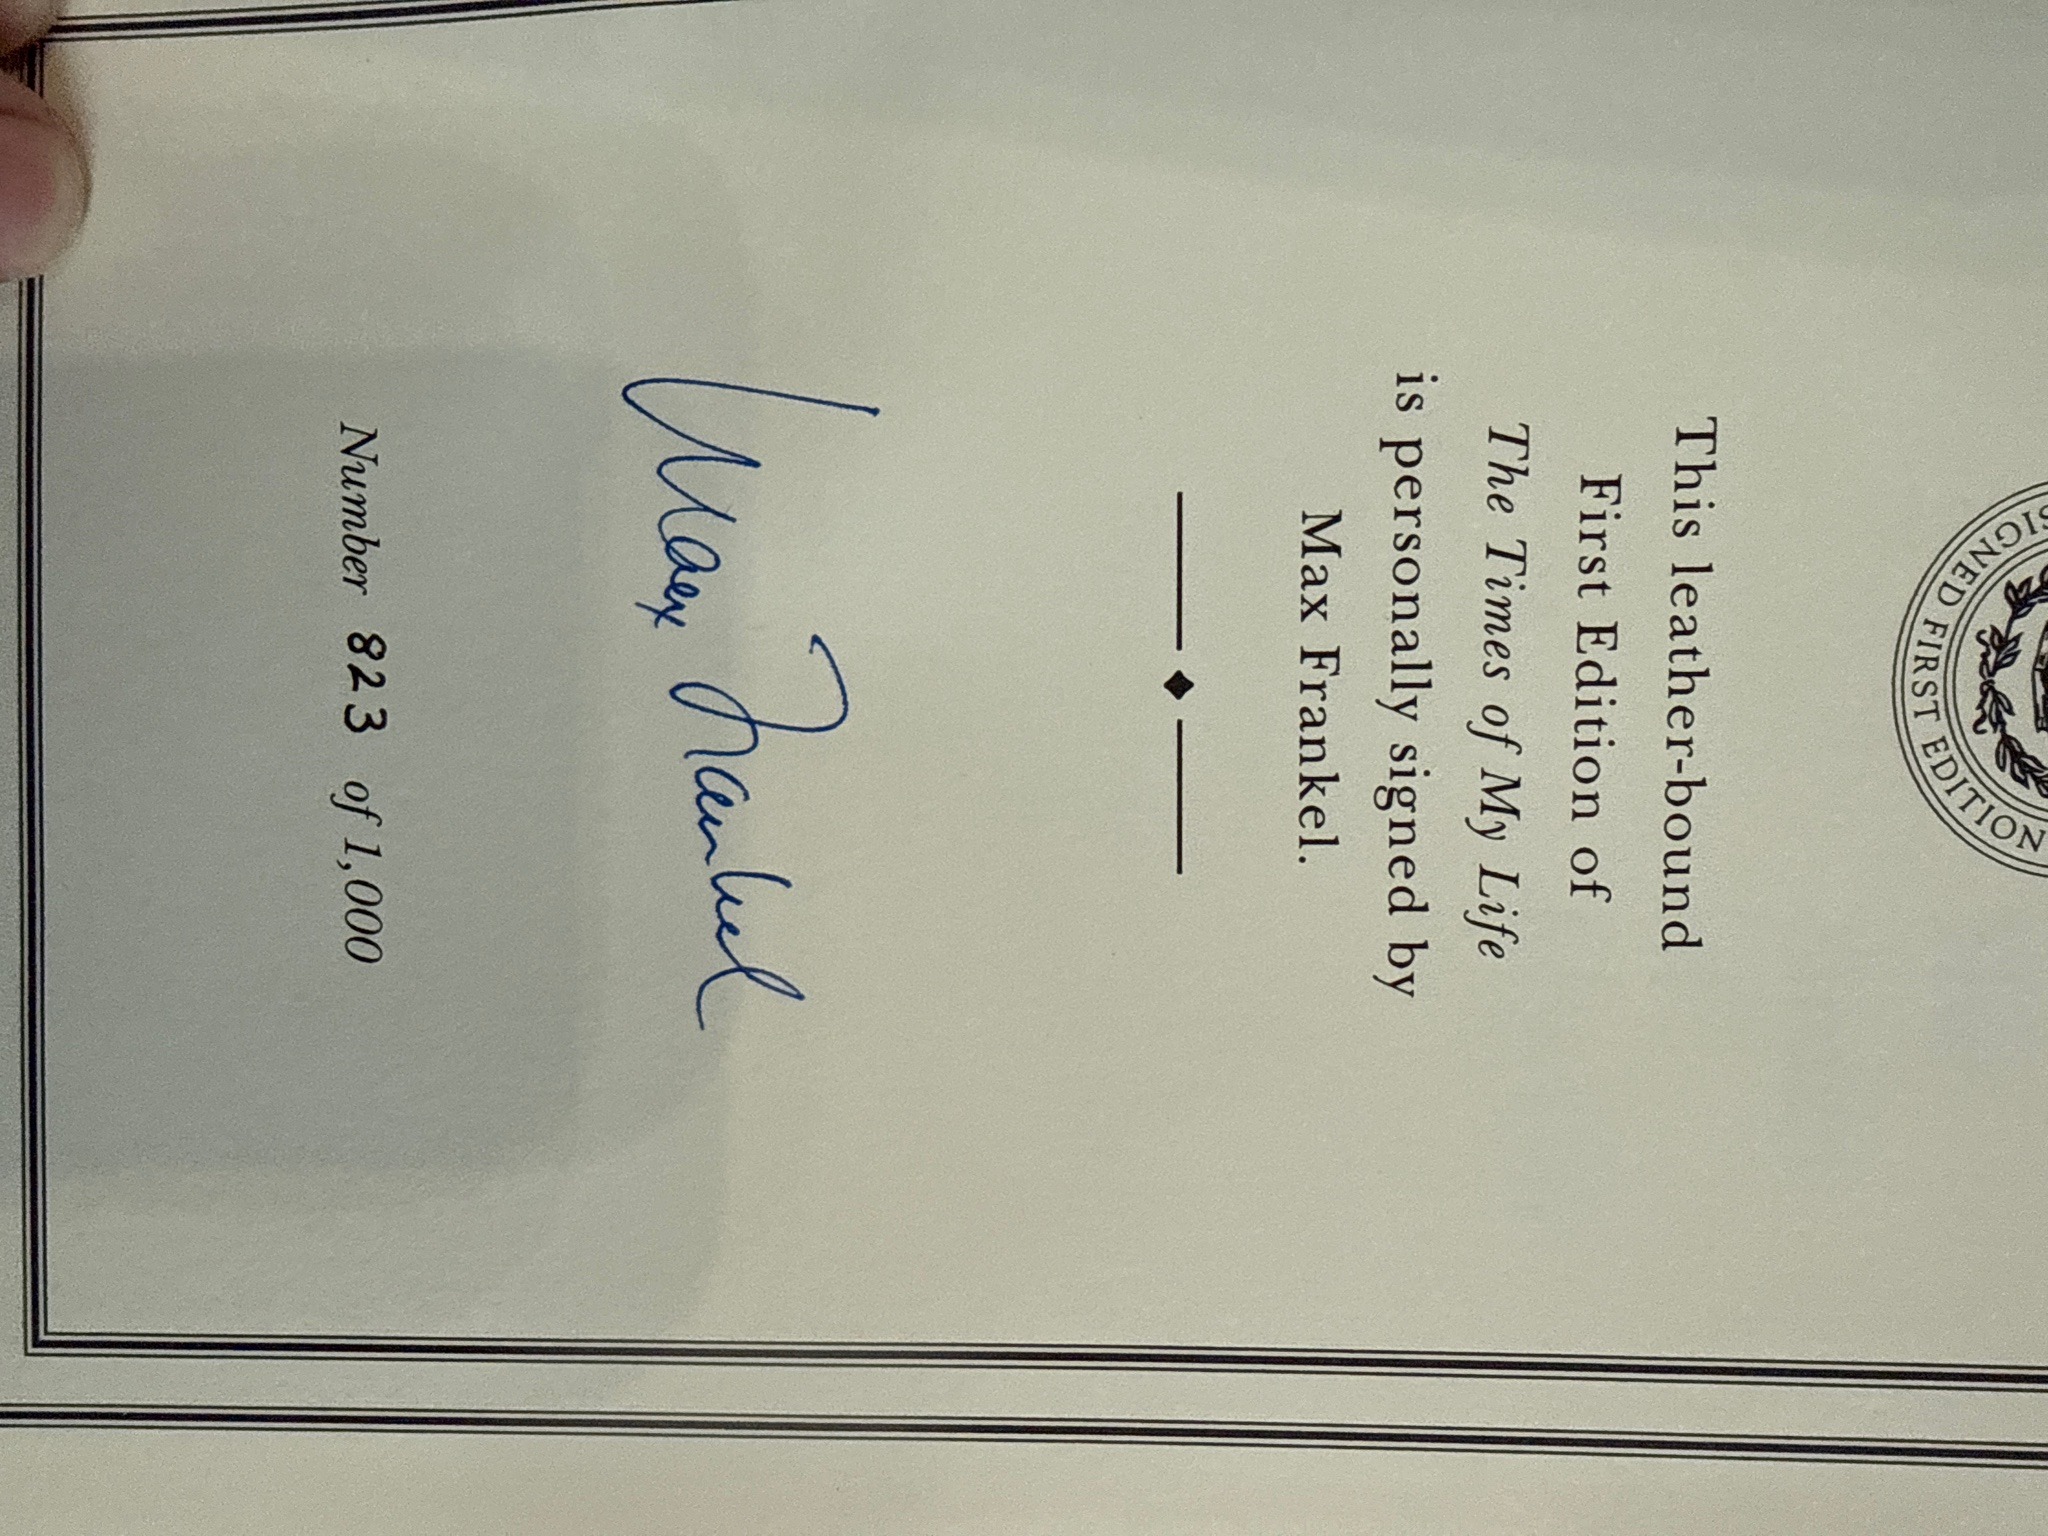 SIGNED FIRST EDITION
This leather-bound
First Edition of
The Times of My Life
is personally signed by
Max Frankel.
Max Frankel
Number 823 of 1,000